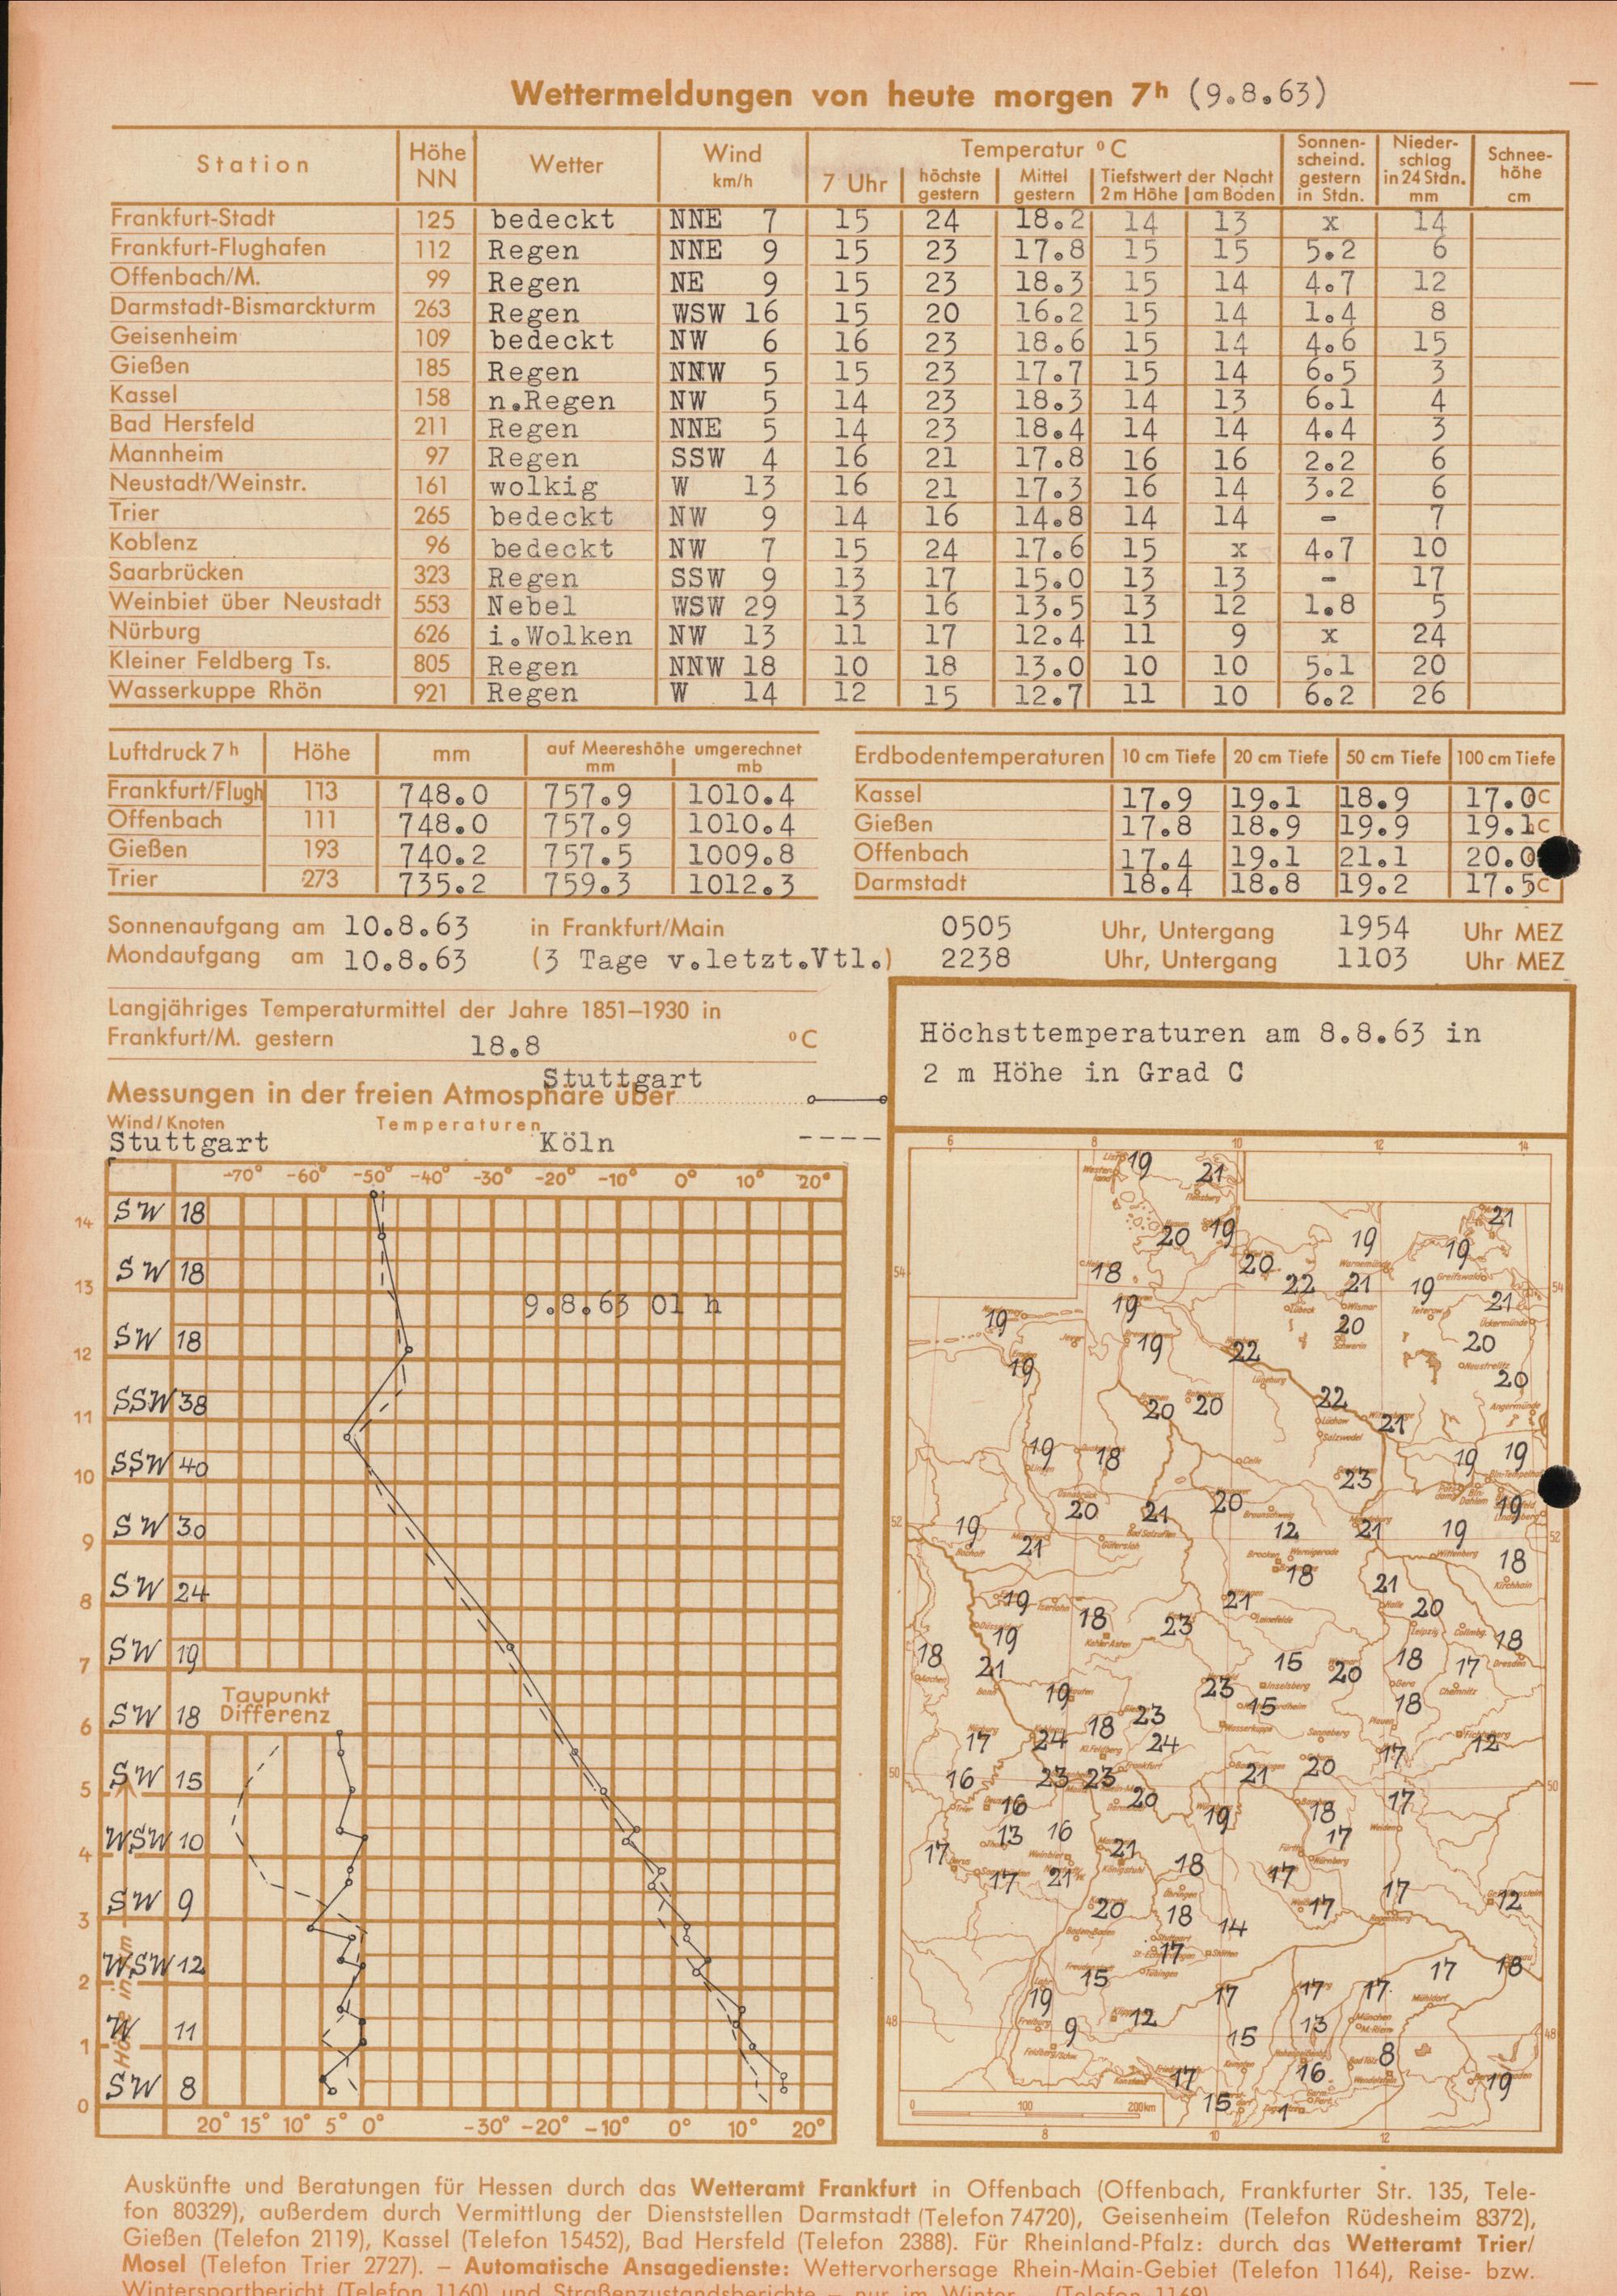 Wettermeldungen von heute morgen 7h (9.8.63)
Station Höhe NN Wetter Wind km/h Temperatur °C Sonnenscheind. gestern in Stdn. Niederschlag in 24 Stdn. mm Schneehöhe cm
7 Uhr höchste gestern Mittel gestern Tiefstwert der Nacht 2 m Höhe am Boden
Frankfurt-Stadt 125 bedeckt NNE 7 15 24 18.2 14 13 x 14
Frankfurt-Flughafen 112 Regen NNE 9 15 23 17.8 15 15 5.2 6
Offenbach/M. 99 Regen NE 9 15 23 18.3 15 14 4.7 12
Darmstadt-Bismarckturm 263 Regen WSW 16 15 20 16.2 15 14 1.4 8
Geisenheim 109 bedeckt NW 6 16 23 18.6 15 14 4.6 15
Gießen 185 Regen NNW 5 15 23 17.7 15 14 6.5 3
Kassel 158 n.Regen NW 5 14 23 18.3 14 13 6.1 4
Bad Hersfeld 211 Regen NNE 5 14 23 18.4 14 14 4.4 3
Mannheim 97 Regen SSW 4 16 21 17.8 16 16 2.2 6
Neustadt/Weinstr. 161 wolkig W 13 16 21 17.3 16 14 3.2 6
Trier 265 bedeckt NW 9 14 16 14.8 14 14 - 7
Koblenz 96 bedeckt NW 7 15 24 17.6 15 x 4.7 10
Saarbrücken 323 Regen SSW 9 13 17 15.0 13 13 - 17
Weinbiet über Neustadt 553 Nebel WSW 29 13 16 13.5 13 12 1.8 5
Nürburg 626 i.Wolken NW 13 11 17 12.4 11 9 x 24
Kleiner Feldberg Ts. 805 Regen NNW 18 10 18 13.0 10 10 5.1 20
Wasserkuppe Rhön 921 Regen W 14 12 15 12.7 11 10 6.2 26
Luftdruck 7h Höhe mm auf Meereshöhe umgerechnet mm mb
Frankfurt/Flugh 113 748.0 757.9 1010.4
Offenbach 111 748.0 757.9 1010.4
Gießen 193 740.2 757.5 1009.8
Trier 273 735.2 759.3 1012.3
Erdbodentemperaturen 10 cm Tiefe 20 cm Tiefe 50 cm Tiefe 100 cm Tiefe
Kassel 17.9 19.1 18.9 17.0°C
Gießen 17.8 18.9 19.9 19.1°C
Offenbach 17.4 19.1 21.1 20.0
Darmstadt 18.4 18.8 19.2 17.5°C
Sonnenaufgang am 10.8.63 in Frankfurt/Main 0505 Uhr, Untergang 1954 Uhr MEZ
Mondaufgang am 10.8.63 (3 Tage v.letzt.Vtl.) 2238 Uhr, Untergang 1103 Uhr MEZ
Langjähriges Temperaturmittel der Jahre 1851–1930 in
Frankfurt/M. gestern 18.8 °C
Stuttgart
Messungen in der freien Atmosphäre über
Wind/Knoten Temperaturen
Stuttgart Köln
-70° -60° -50° -40° -30° -20° -10° 0° 10° 20°
14 SW 18
13 SW 18
9.8.63 01 h
12 SW 18
11 SSW 38
10 SSW 40
9 SW 30
8 SW 24
7 SW 19
Taupunkt
Differenz
6 SW 18
5 SW 15
4 WSW 10
3 SW 9
2 WSW 12
1 W 11
0 SW 8
Höhe in km
20° 15° 10° 5° 0° -30° -20° -10° 0° 10° 20°
Höchsttemperaturen am 8.8.63 in
2 m Höhe in Grad C
6 8 10 12 14
19 21
20 19 19 19 21
54 18 20 22 21 19 54
19 19 21
20 20
19 19 22 20
20 20 22 21
19 18 23 19 19
20 21 20 19
52 19 21 12 21 19 52
18 18
19 18 23 21 21 20
18 19 21 18 17 18
15 20
19 23 15 18
17 24 18 23 24 17 12
50 16 23 23 21 20 50
16 20 19 18 17
13 16 17
17 17 21 21 18 17
20 18 14 17 17 12
17 17 18
15
19 12 17 17 17
48 9 15 13 48
17 16 8 19
15 1
0 100 200km
8 10 12
Auskünfte und Beratungen für Hessen durch das Wetteramt Frankfurt in Offenbach (Offenbach, Frankfurter Str. 135, Tele-
fon 80329), außerdem durch Vermittlung der Dienststellen Darmstadt (Telefon 74720), Geisenheim (Telefon Rüdesheim 8372),
Gießen (Telefon 2119), Kassel (Telefon 15452), Bad Hersfeld (Telefon 2388). Für Rheinland-Pfalz: durch das Wetteramt Trier/
Mosel (Telefon Trier 2727). – Automatische Ansagedienste: Wettervorhersage Rhein-Main-Gebiet (Telefon 1164), Reise- bzw.
Wintersportbericht (Telefon 1160) und Straßenzustandsberichte – nur im Winter – (Telefon 1169)